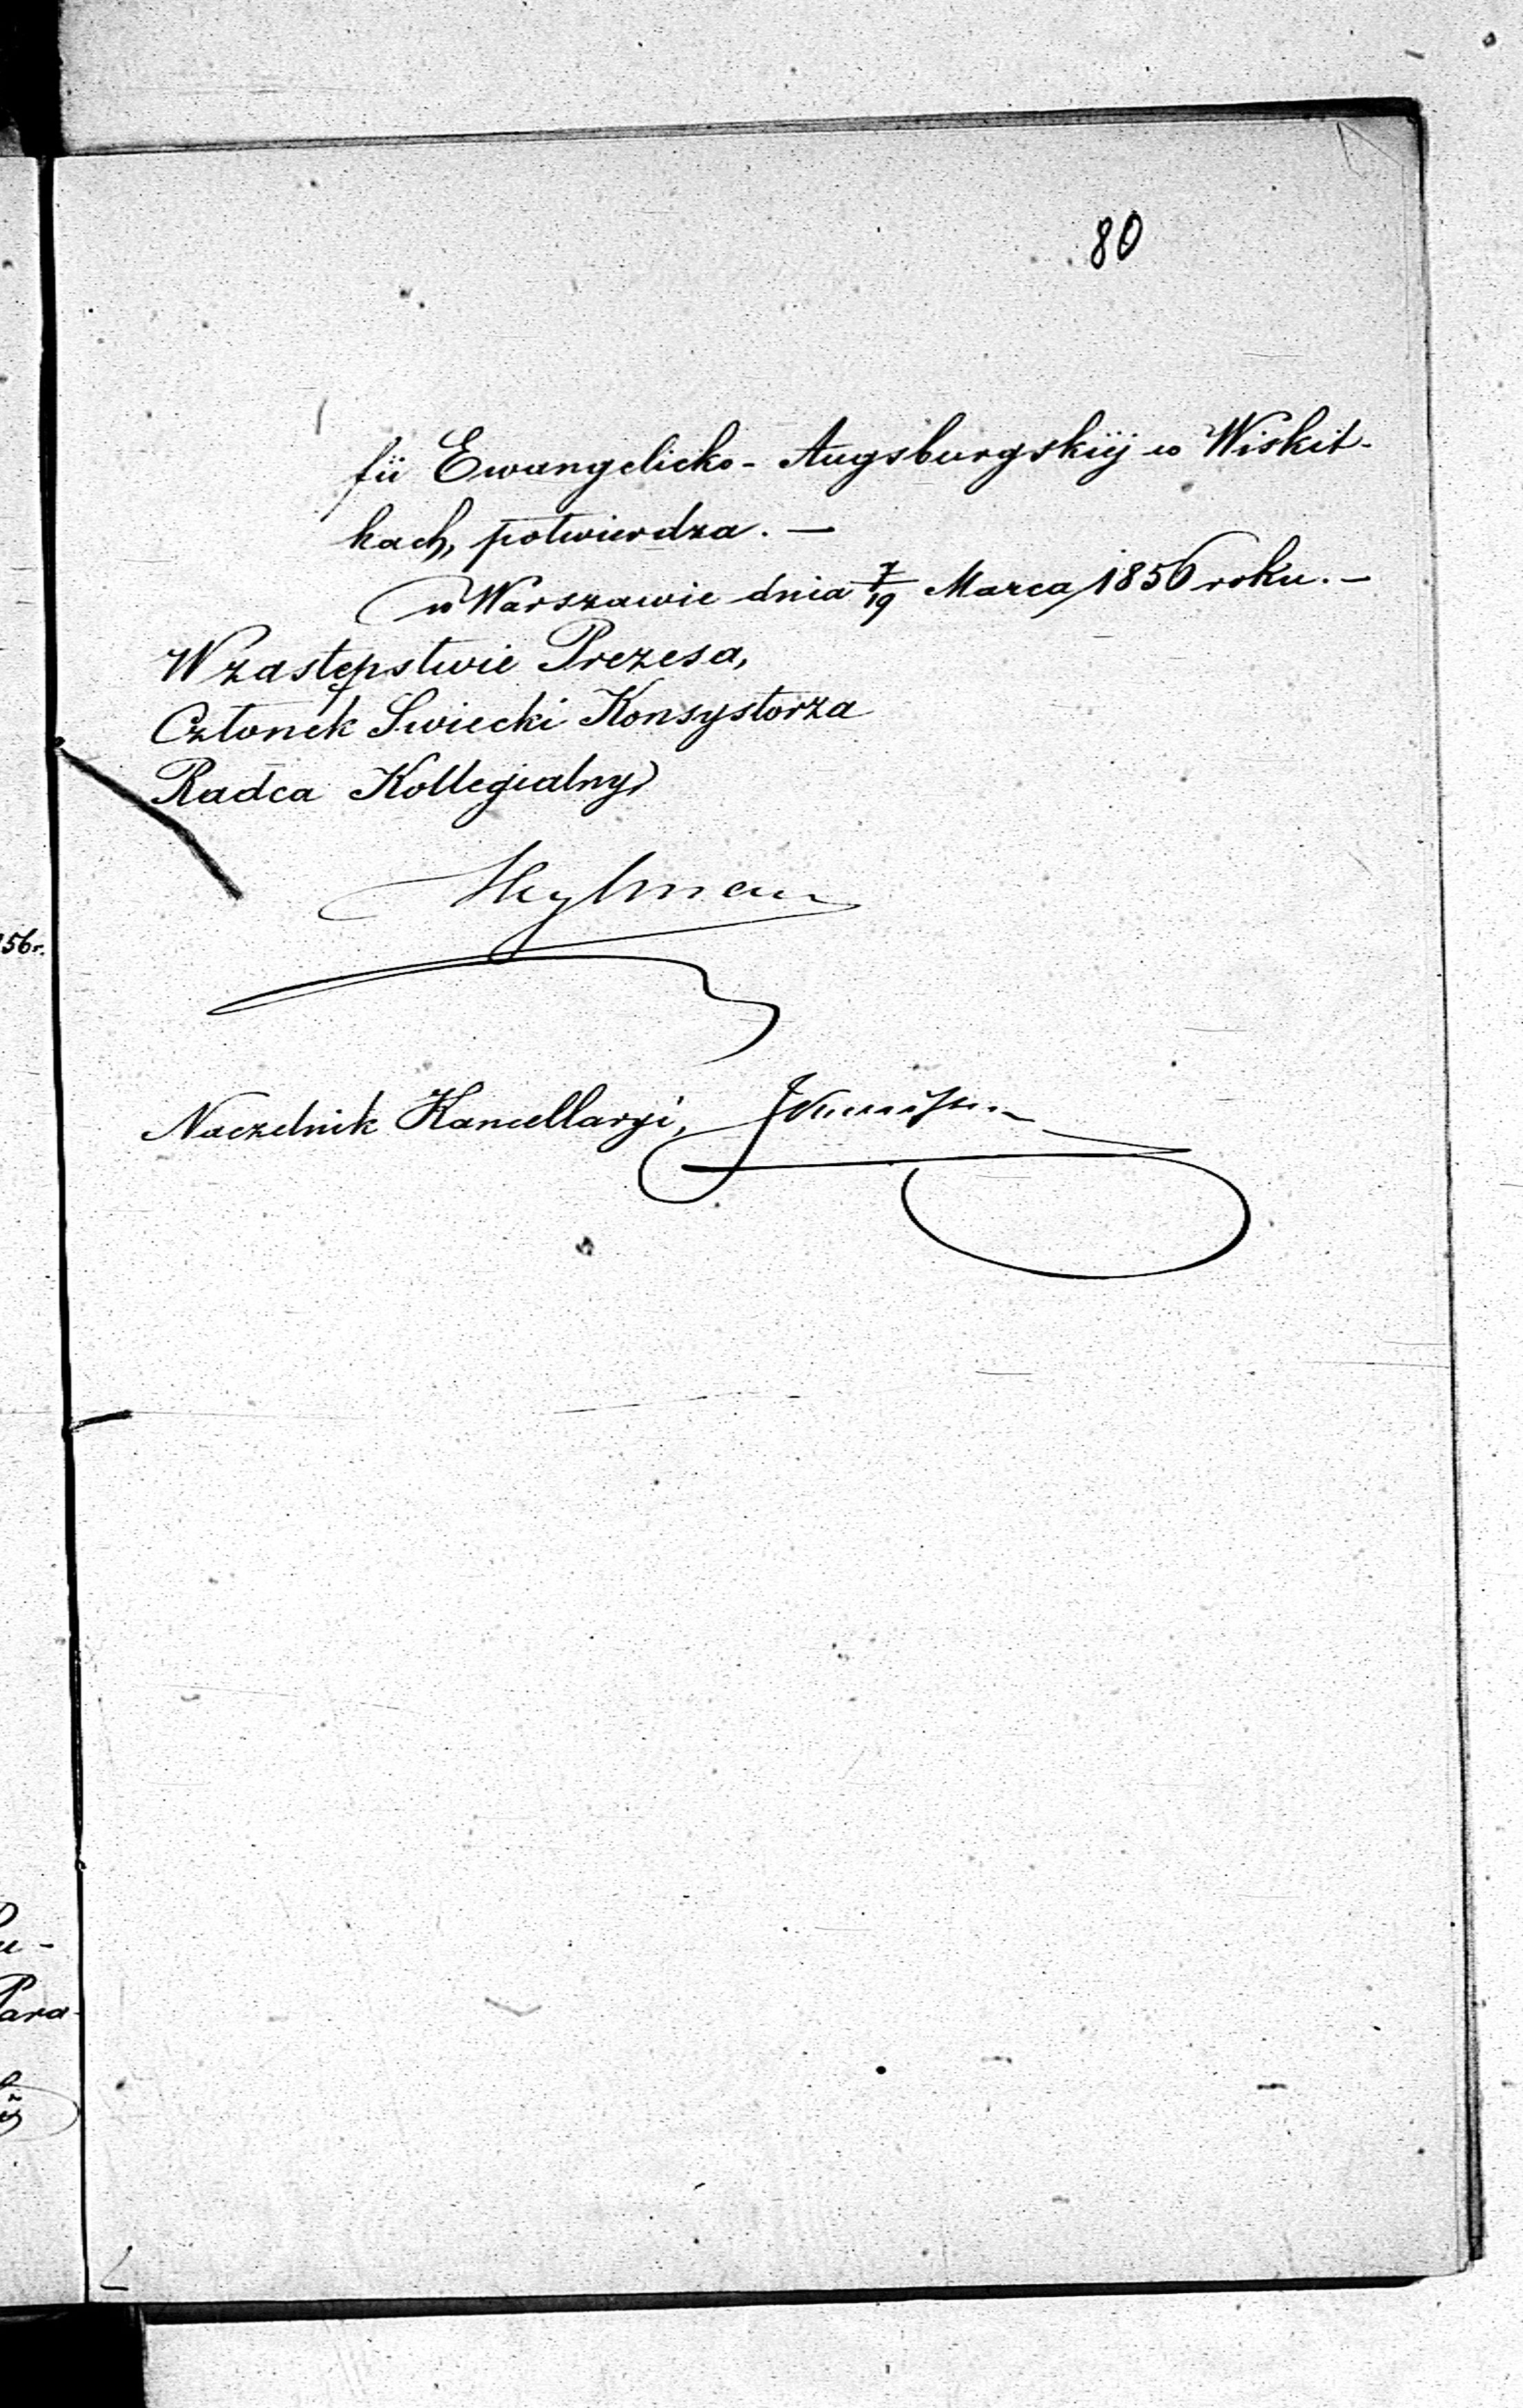 80
fii Ewangelicko-Augsburgskiéj w Wiskit-
kach, potwierdza. —
w Warszawie dnia 7/19 Marca 1856 roku. —
W zastępstwie Prezesa,
Członek Swiecki Konsystorza
Radca Kollegialny
Heylman
Naczelnik Kancellaryi,
56r.
Para-